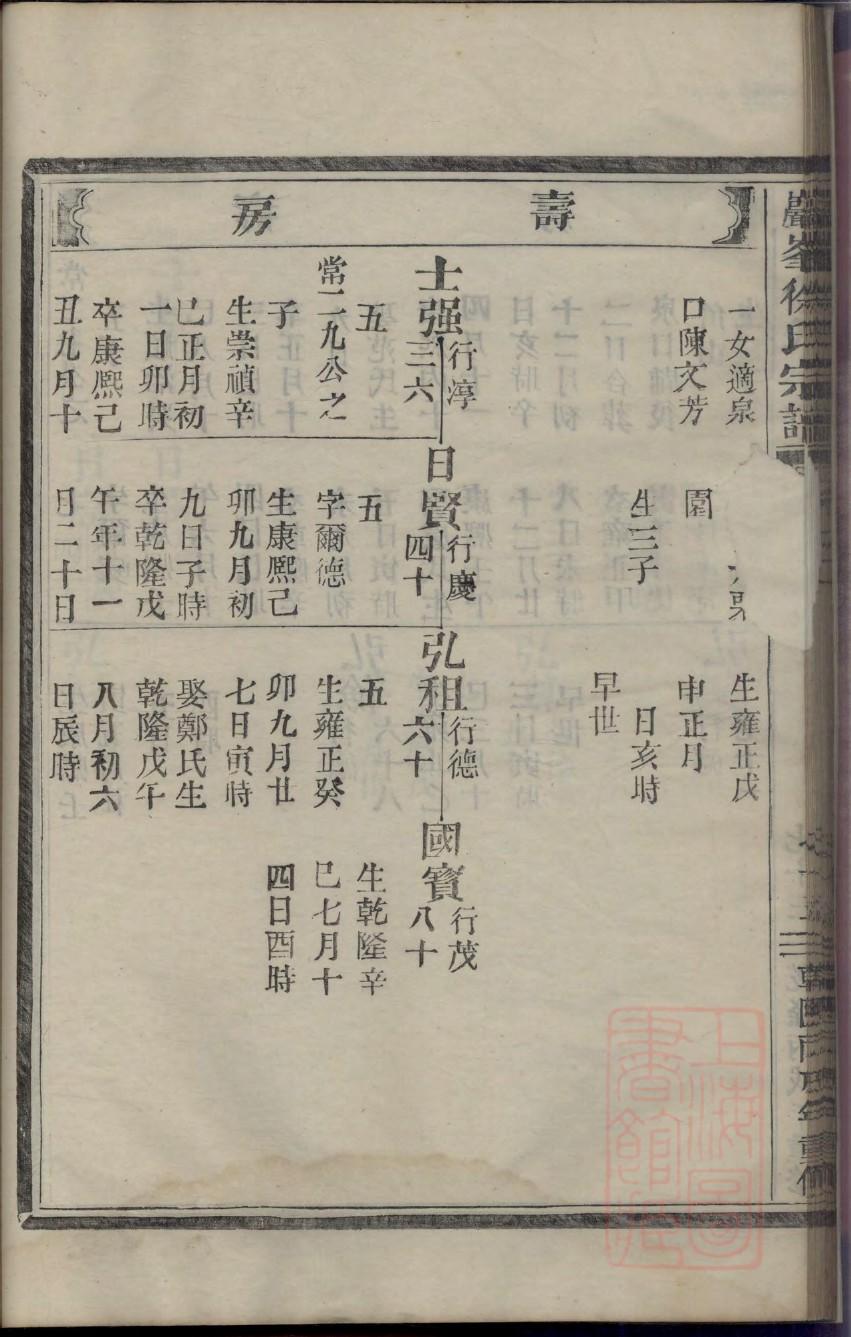 壽房
一女適泉
口陳文芳
園
生三子
生雍正戊
申正月
日亥時
早世
士强行淳三六
五
常二九公之
子
生崇禎辛
巳正月初
一日卯時
卒康熙己
丑九月十
日賢行慶四十
五
字爾德
生康熙己
卯九月初
九日子時
卒乾隆戊
午年十一
月二十日
弘祖行德六十
五
生雍正癸
卯九月廿
七日寅時
娶鄭氏生
乾隆戊午
八月初六
日辰時
國寳行茂八十
生乾隆辛
巳七月十
四日酉時
巖峯徐氏宗譜
重修
上海圖書館藏